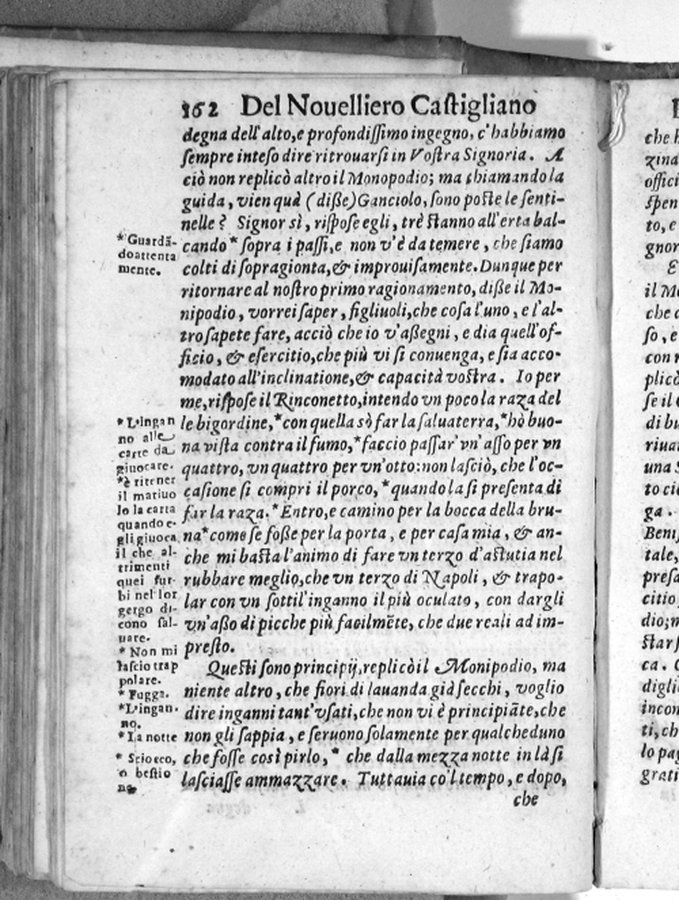 162 Del Nouelliero Castigliano
degna dell'alto, e profondissimo ingegno, c'habbiamo
sempre inteso dire ritrouarsi in Vostra Signoria. A
ciò non replicò altro il Monopodio; ma chiamando la
guida, vien quà (disse) Ganciolo, sono poste le senti-
nelle? Signor sì, rispose egli, trè stanno all'erta bal-
cando* sopra i passi, e non v'è da temere, che siamo
colti di sopragionta, & improuisamente. Dunque per
ritornare al nostro primo ragionamento, disse il Mo-
nipodio, vorrei saper, figliuoli, che cosa l'uno, e l'al-
tro sapete fare, acciò che io v'assegni, e dia quell'of-
ficio, & esercitio, che più vi si conuenga, e sia acco-
modato all'inclinatione, & capacità vostra. Io per
me, rispose il Rinconetto, intendo vn poco la raza del
le bigordine,* con quella sò far la saluaterra,* hò buo-
na vista contra il fumo,* faccio passar' vn'asso per vn
quattro, vn quattro per vn'otto: non lasciò, che l'oc-
casione si compri il porco,* quando la si presenta di
far la raza.* Entro, e camino per la bocca della bru-
na* come se fosse per la porta, e per casa mia, & an-
che mi basta l'animo di fare vn terzo d'astutia nel
rubbare meglio, che vn terzo di Napoli, & trapo-
lar con vn sottil'inganno il più oculato, con dargli
vn'asso di picche più facilmẽte, che due reali ad im-
presto.
Questi sono principij, replicò il Monipodio, ma
niente altro, che fiori di lauanda già secchi, voglio
dire inganni tant'vsati, che non vi è principiãte, che
non gli sappia, e seruono solamente per qualcheduno
che fosse così pirlo,* che dalla mezza notte in là si
lasciasse ammazzare. Tuttauia co'l tempo, e dopo,
che
*Guardã-
do attenta
mente.
*L'ingan
no alle
carte da
giuocare.
*è ritener
il matiuo
lo la carta
quando e-
gli giuoca
il che al-
trimenti
quei fur-
bi nel lor
gergo di-
cono sal-
uare.
* Non mi
lascio trap
polare.
* Fugga.
*L'ingan-
no.
*La notte
* Sciocco,
o bestio
na.
che h
zina
offici
spen
to, e
gnor
il Mo
che a
so, e
con r
plicò
se il
di bu
riuat
una S
to cio
ga.
Beni
tale,
presa
citio
dio; m
star
ca.
digli
incon
ti, ch
lo pa
grati